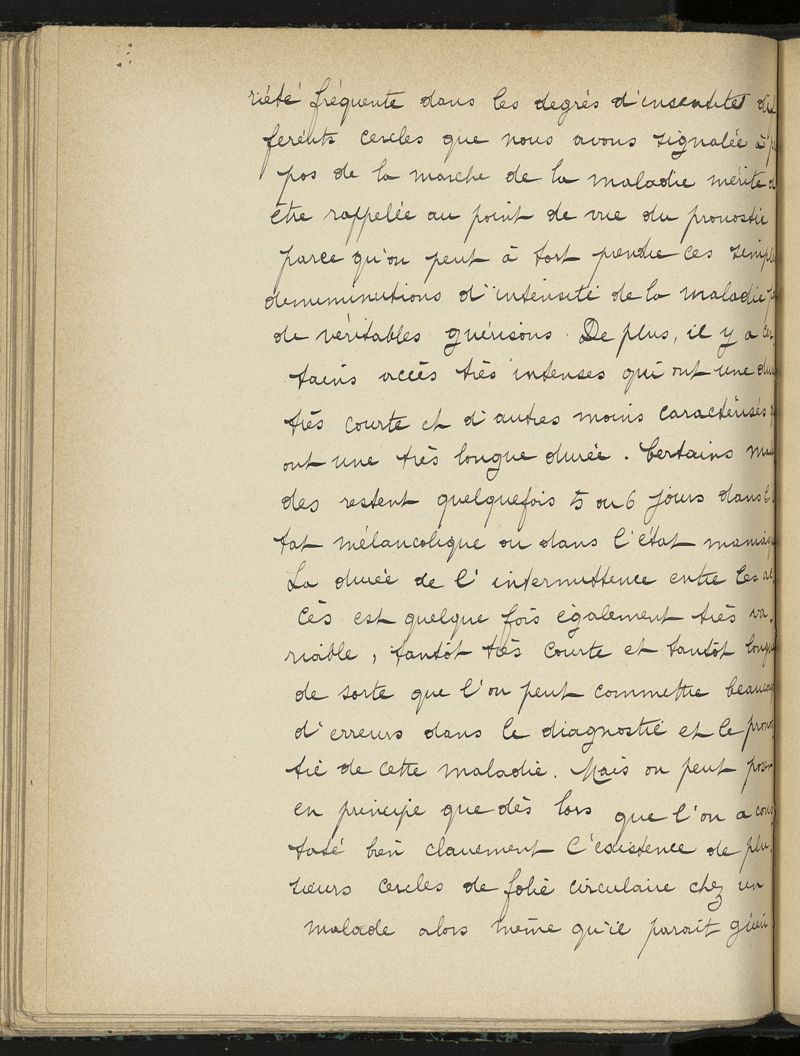 riété fréquente dans les degrés d'insentités dif
ferénts cercles que nous avons signalée à p
pos de la marche de la maladie mérite d
être rappelée au point de vue du pronostic
parce qu'on peut à tort prendre ces simple
dememinutions d'intensité de la maladie p
de véritables guérisons. De plus, il y a cer
tains accès très intenses qui ont une dur
très courte et d'autres moins caractérisés
ont une très longue durée. Certains mal
des restent quelquefois 5 ou 6 jours dans l'
tat mélancolique ou dans l'état mania
La durée de l'intermittence entre les ac
cès est quelque fois également très va
riable, tantôt très courte et tantôt longu
de sorte que l'on peut commettre beaucou
d'erreurs dans le diagnostic et le pronos
tic de cette maladie. Mais on peut poser
en principe que dès lors que l'on a cons
taté bien clairement l'existence de plu
sieurs cercles de folie circulaire chez un
malade alors même qu'il parait guéri